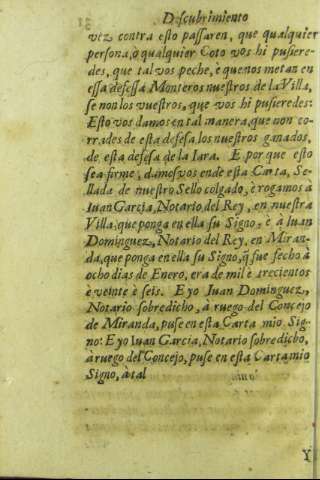 Descubrimiento
vez contra esto passaren, que qualquier
persona, o qualquier Coto vos hi pusiere-
des, que tal vos peche, è que nos metan en
essa defessa Monteros nuestros de la Villa,
se non los vuestros, que vos hi pusieredes:
Esto vos damos en tal manera, que non co-
rrades de esta defesa los nuestros ganados,
de, esta defesa de la Iara. E por que esto
sea firme, damosvos ende esta Carta, Se-
llada de nuestro Sello colgado, è rogamos à
Iuan Garcia, Notario del Rey, en nuestra
Villa, que ponga en ella su Signo, è à Iuan
Dominguez, Notario del Rey, en Miran-
da, que ponga en ella su Signo, q̃ fue fecho à
ocho dias de Enero, era de mil è trecientos
è veinte è seis. E yo Iuan Dominguez,
Notario sobredicho, à ruego del Concejo
de Miranda, puse en esta Carta mio Sig-
no: E yo Iuan Garcia, Notario sobredicho,
à ruego del Concejo, puse en esta Carta mio
Signo, à tal
Y